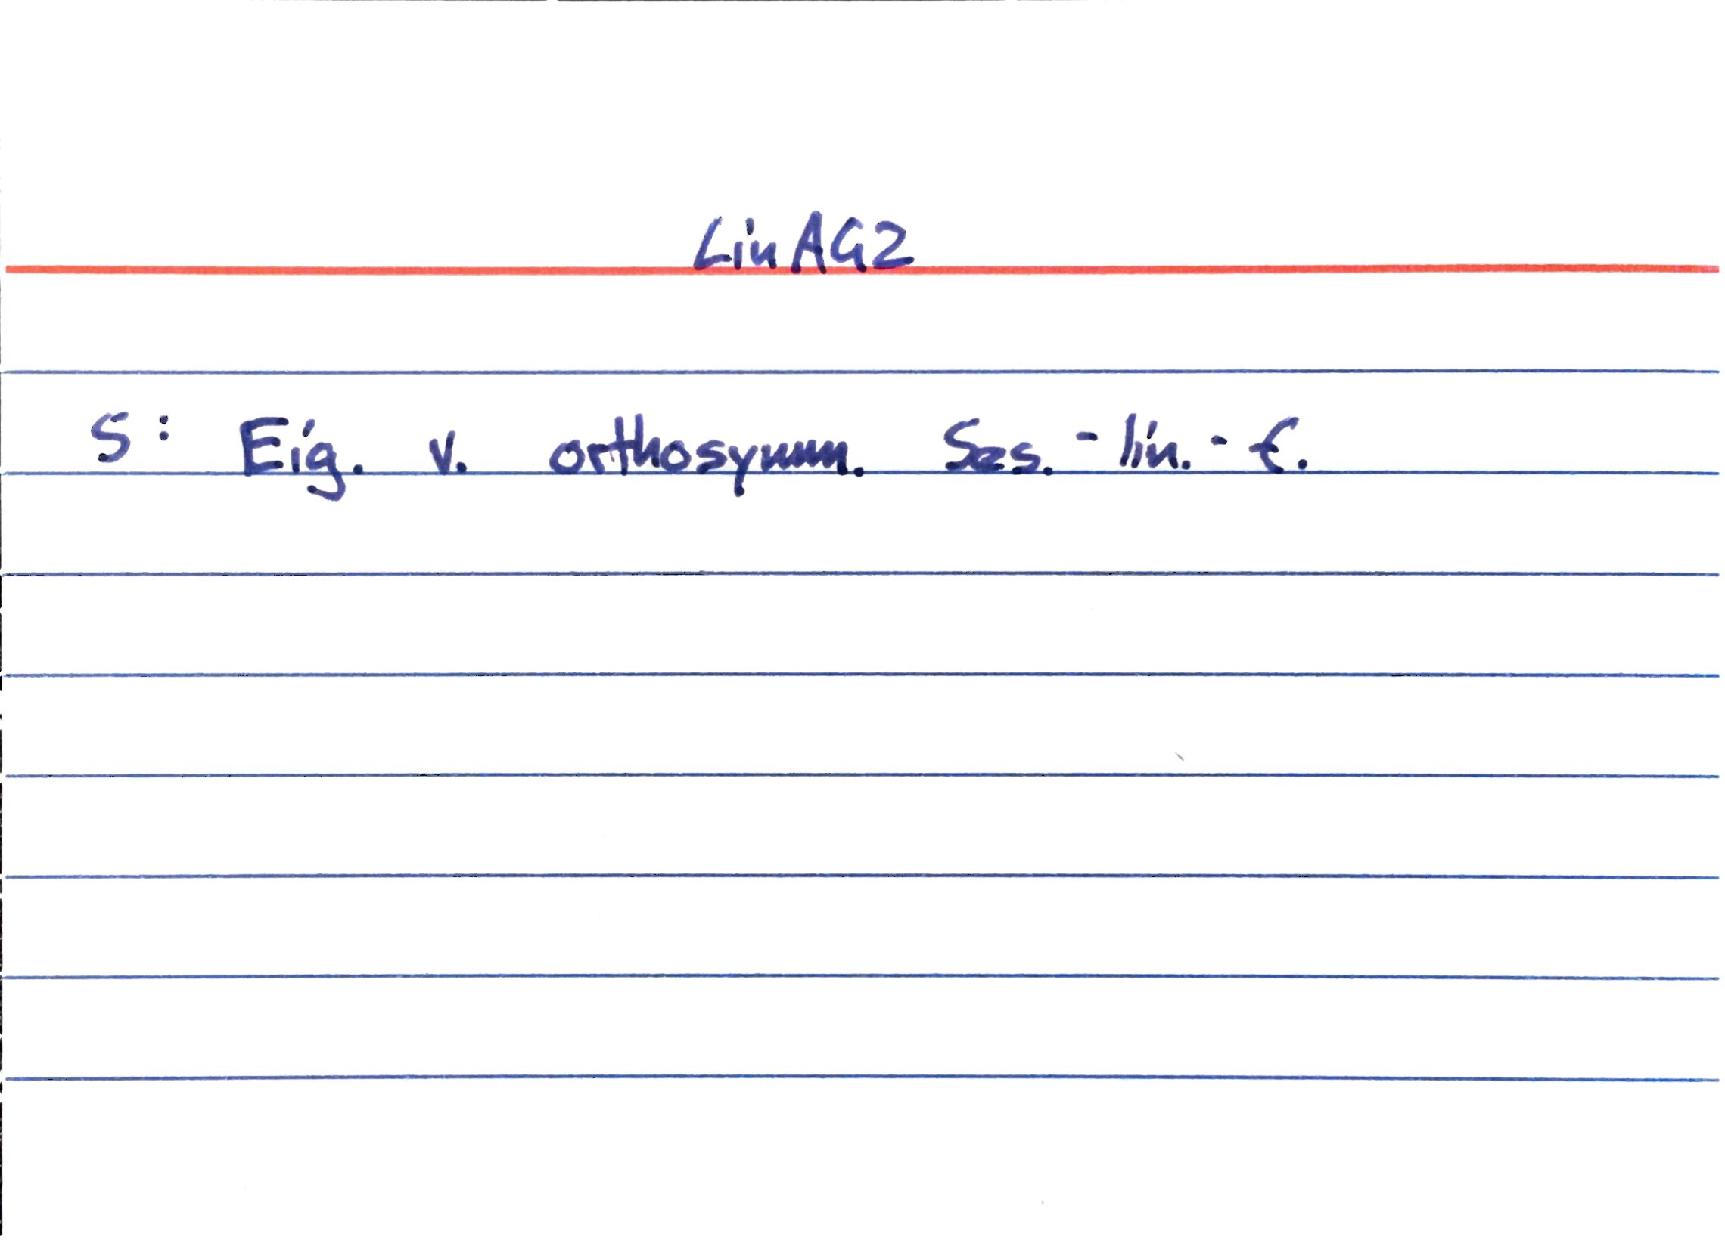 LinAG2
S: Eig. v. orthosymm. Ses.-lin.-f.